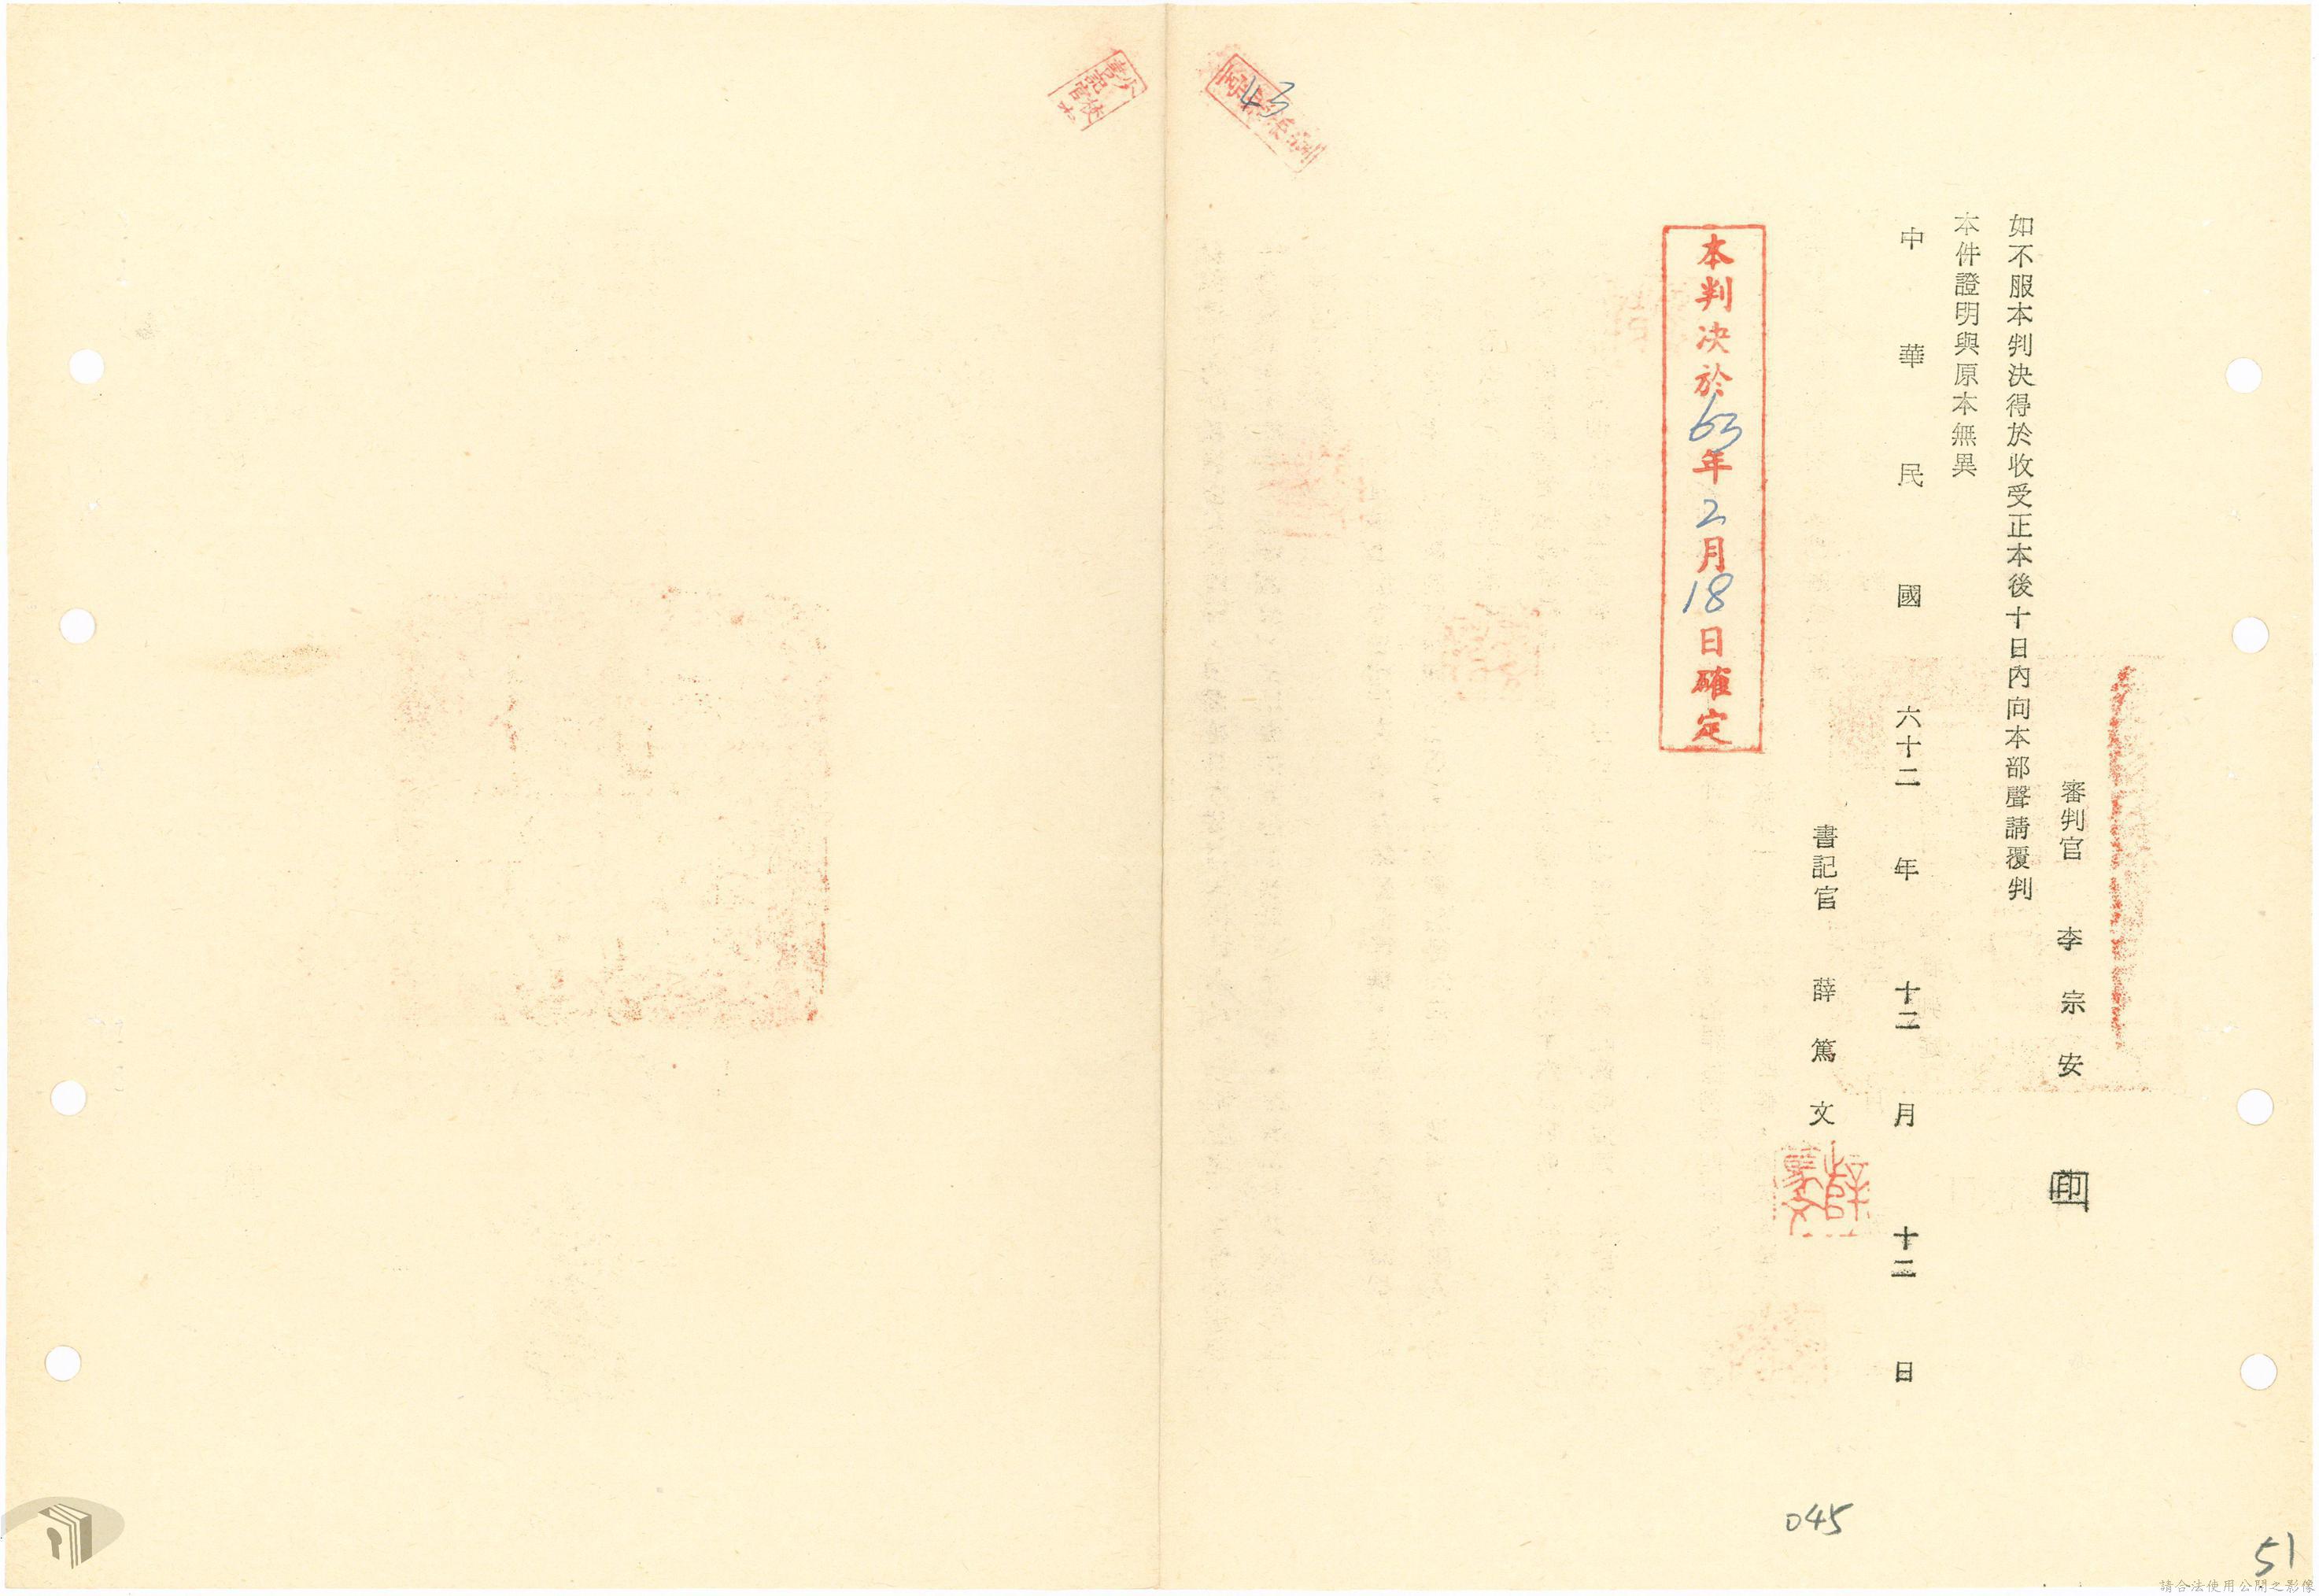 審判官 李宗安 印
如不服本判決得於收受正本後十日內向本部聲請覆判
本件證明與原本無異
中華民國六十二年十二月十二日
書記官 薛篤文
薛篤文
本判決於63年2月18日確定
43
書記官
045
51
請合法使用公開之影像